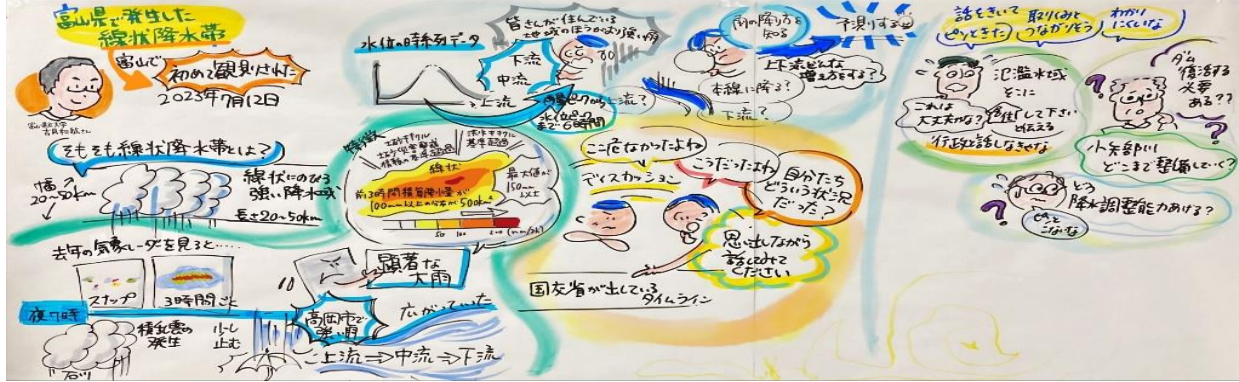 富山県で発生した
線状降水帯
富山で
初めて観測された
2023年7月12日
そもそも線状降水帯とは?
幅
20~50km
線状にのびる
強い降水域
長さ20~50km
去年の気象レーダーを見ると……
スナップ
3時間ごと
夜7時
積乱雲の
発生
少し
止む
高岡市で
強い雨
広がっていった
上流⇒中流⇒下流
顕著な
大雨
水位の時系列データ
下流
中流
上流
皆さんが住んでいる
地域のほうがより強い雨
水位ピーク
まで6時間
特徴
線状
前3時間積算降水量が
100mm以上の分布が500km²
最大値が
150mm
以上
50 100 200 (mm/3h)
雨の降り方を
知る
予測りする
上下流どんな
増え方をする?
本線に降る?
上流?
下流?
ここ危なかったよね
こうだったよね
ディスカッション
自分たち
どういう状況
だった?
思い出しながら
話してみて
ください
国交省が出している
タイムライン
話をきいて
ピッときた
取りくみと
つながりそう
わかり
にくいな
氾濫水域
そこに
これは
大丈夫かな?
住して下さい
と伝える
行政と話しなきゃな
ダム
復活する
必要
ある??
小矢部川
どこまで整備していく?
どう
降水調整能力あげる?
ピンと
こないな